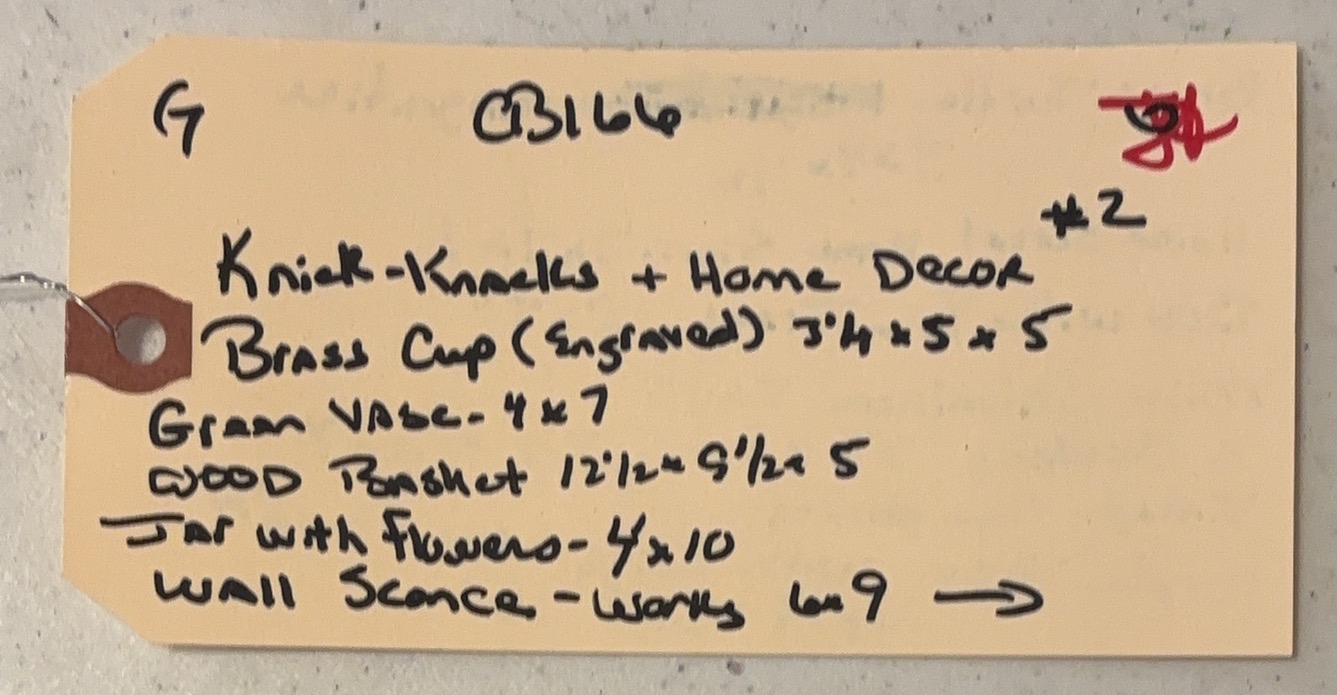 G CB166
#2
Knick-Knacks + Home Decor
Brass Cup (Engraved) 3 1/4 x 5 x 5
Green Vase - 4 x 7
Wood Basket 12 1/2 x 9 1/2 x 5
Jar with flowers - 4 x 10
Wall Sconce - works 6 x 9 →